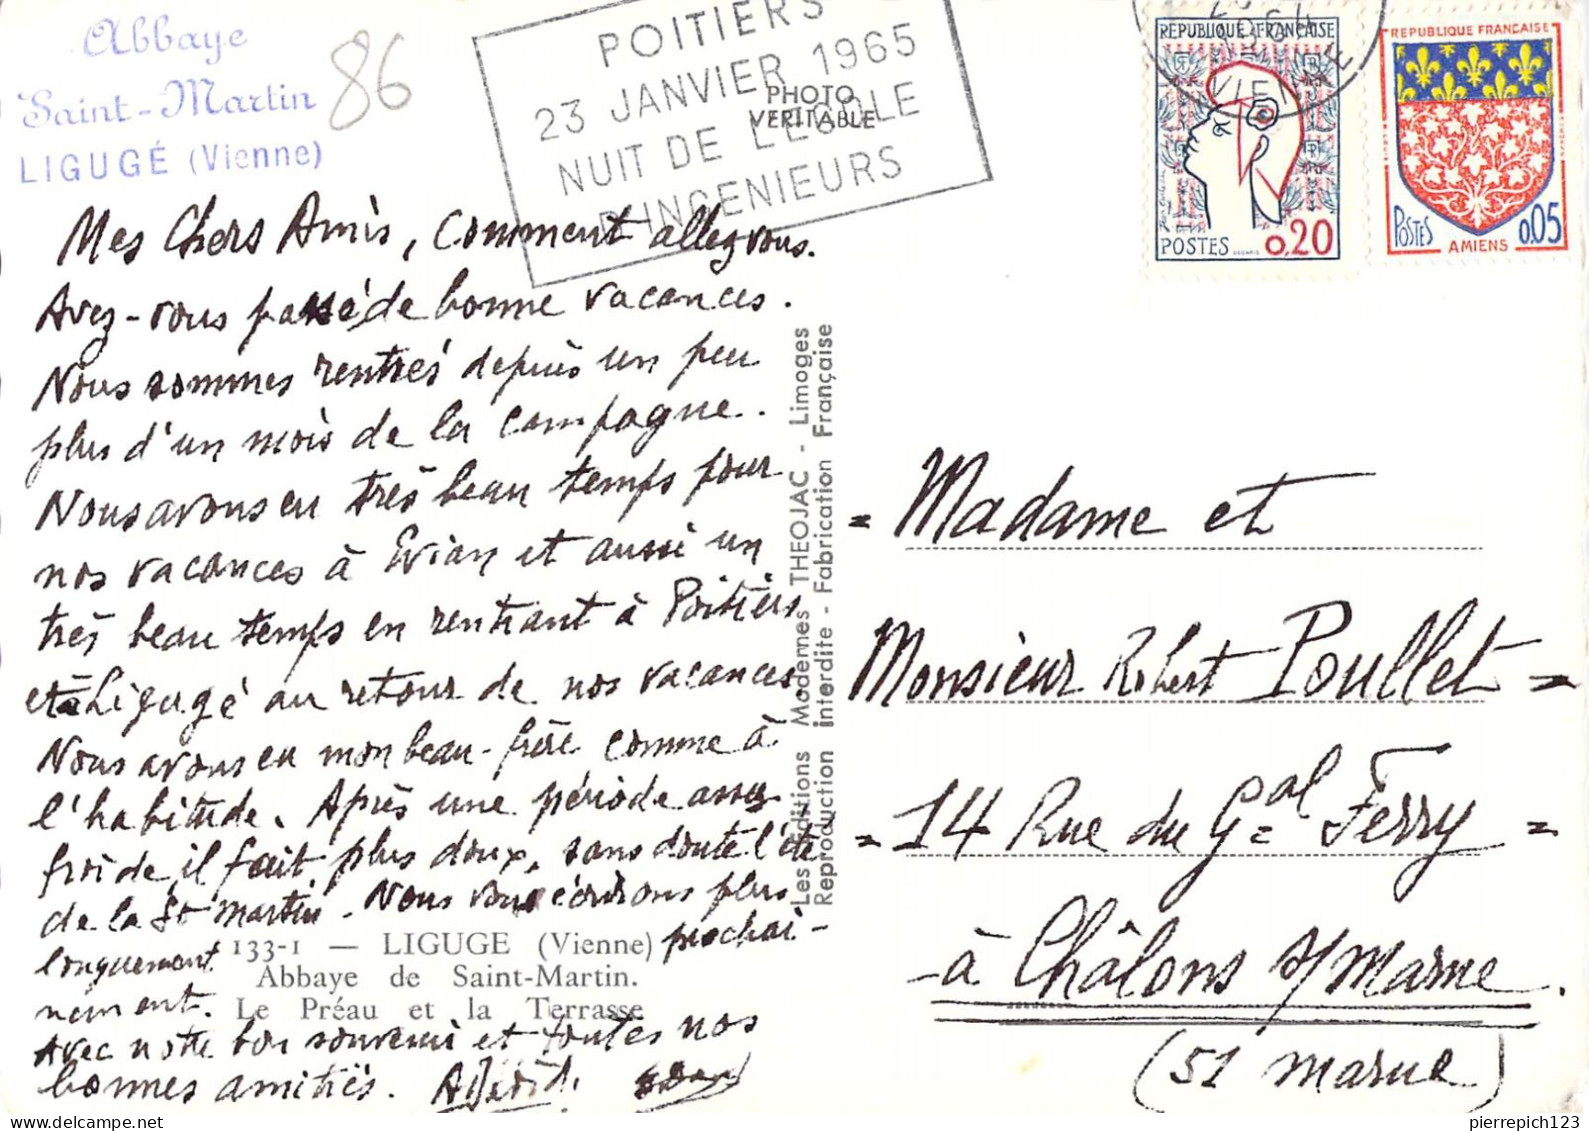 Abbaye
Saint-Martin
LIGUGÉ (Vienne)
86
POITIERS
23 JANVIER 1965
NUIT DE L'ECOLE
D'INGENIEURS
PHOTO
VERITABLE
VIENNE
REPUBLIQUE FRANÇAISE
POSTES 0,20
REPUBLIQUE FRANÇAISE
POSTES AMIENS 0,05
Mes Chers Amis, Comment allez vous.
Avez-vous passé de bonne vacances.
Nous sommes rentrés depuis un peu
plus d'un mois de la campagne.
Nous avons eu très beau temps pour
nos vacances à Evian et aussi un
très beau temps en rentrant à Poitiers
et à Ligugé au retour de nos vacances
Nous avons eu mon beau-frère comme à
l'habitude. Après une période assez
froide, il fait plus doux, sans doute l'été
de la St Martin. Nous vous écrirons plus
longuement prochai-
nement.
Avec notre bon souvenir et toutes nos
bonnes amitiés.
133-1 — LIGUGE (Vienne)
Abbaye de Saint-Martin.
Le Préau et la Terrasse
Les Editions Modernes THEOJAC - Limoges
Reproduction interdite - Fabrication Française
= Madame et
Monsieur Robert Poullet =
= 14 Rue du Gal Ferry =
- à Châlons s/Marne.
(51 Marne)
pierrepich123